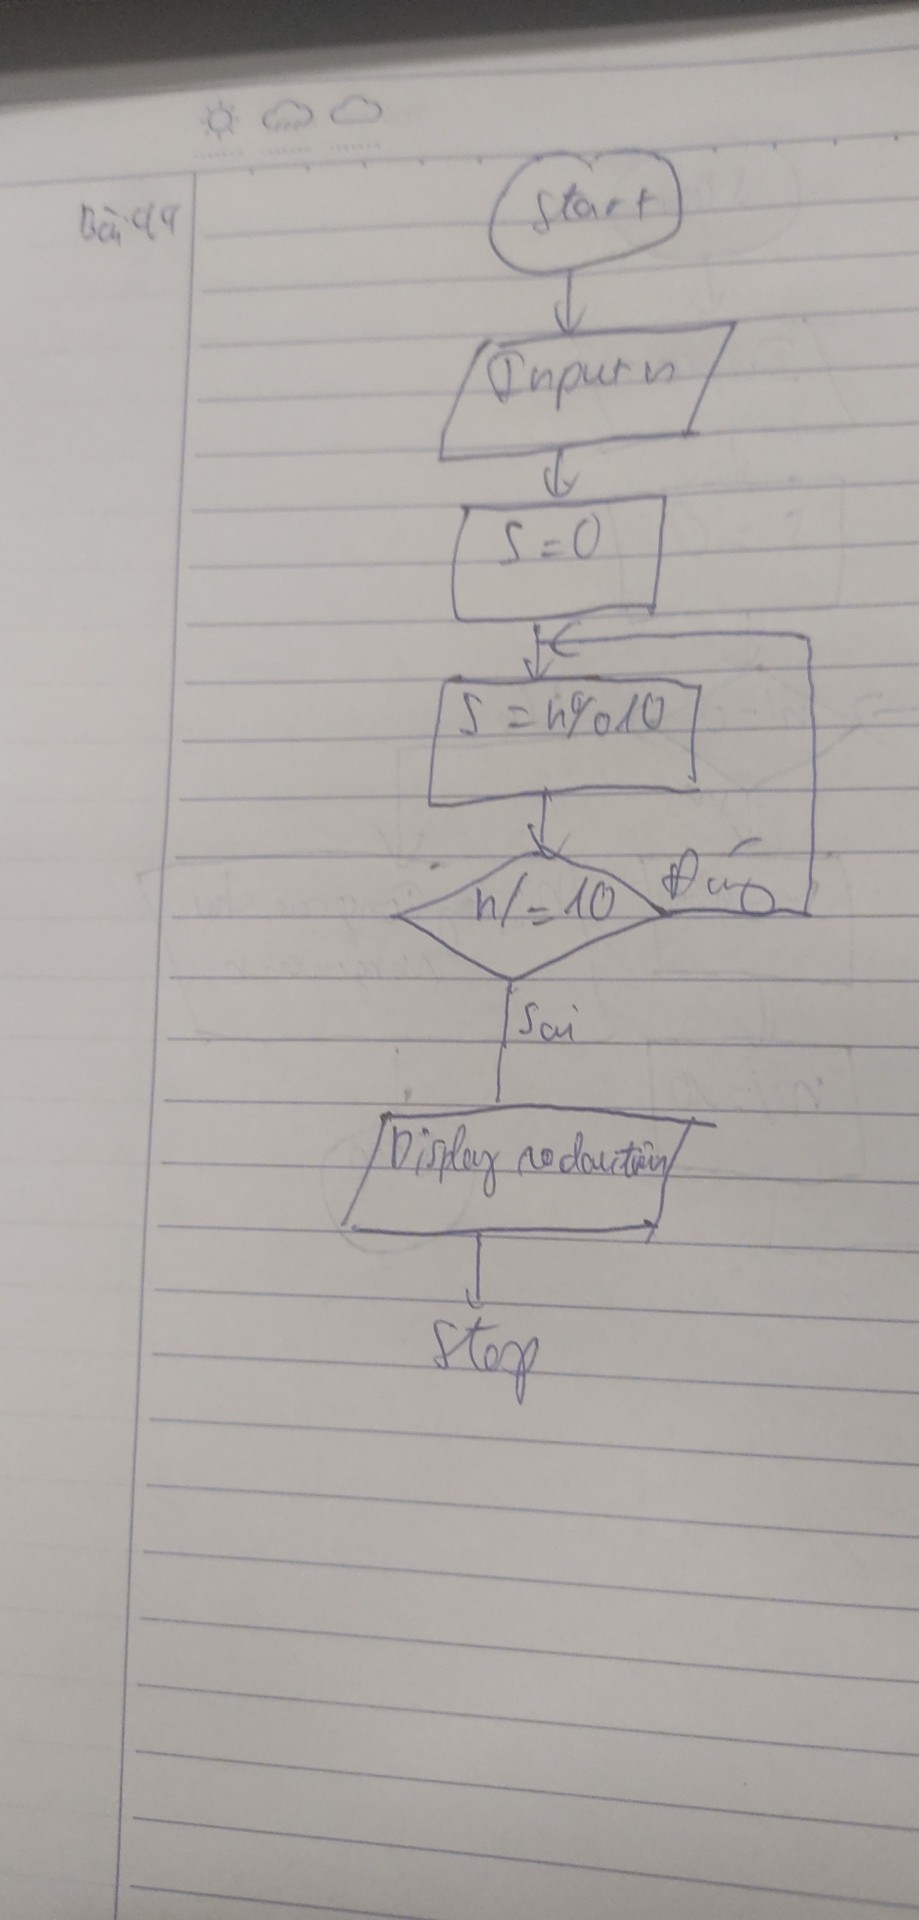 Bài 44
Start
Input n
S = 0
S = n%10
n/=10
Đúng
Sai
Display
Stop